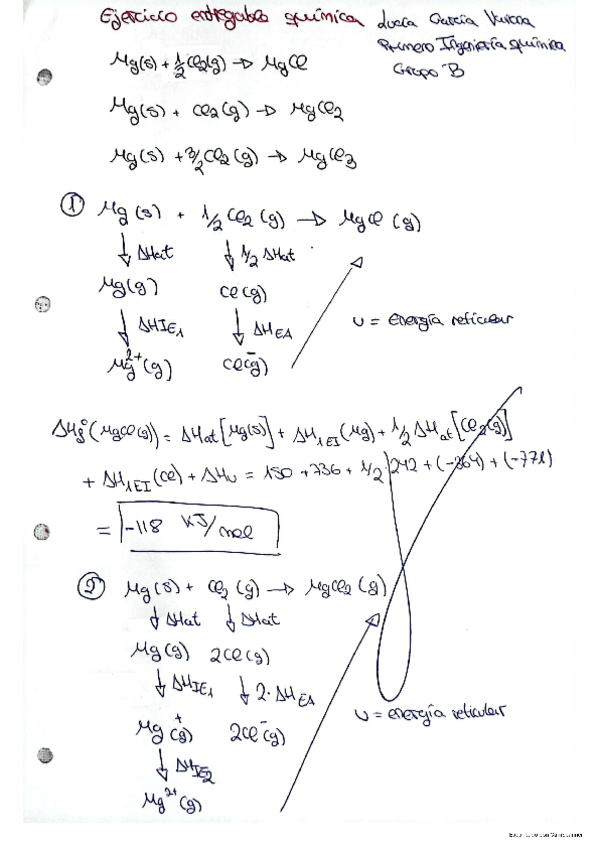 Ejercicio entregable química Lucía García
Primero Ingeniería química
Grupo B
Mg(s) + 1/2 Cl2(g) → MgCl
Mg(s) + Cl2(g) → MgCl2
Mg(s) + 3/2 Cl2(g) → MgCl3
① Mg(s) + 1/2 Cl2(g) → MgCl(g)
↓ ΔHat ↓ 1/2 ΔHat
Mg(g) Cl(g)
↓ ΔHIE1 ↓ ΔHEA U = energía reticular
Mg2+(g) Cl-(g)
ΔHf°(MgCl(g)) = ΔHat[Mg(s)] + ΔH1EI(Mg) + 1/2 ΔHat[Cl2(g)]
+ ΔH1EI(Cl) + ΔHU = 150 + 736 + 1/2 · 242 + (-364) + (-771)
= -118 KJ/mol
② Mg(s) + Cl2(g) → MgCl2(g)
↓ ΔHat ↓ ΔHat
Mg(g) 2Cl(g)
↓ ΔHIE1 ↓ 2·ΔHEA
Mg+(g) 2Cl-(g) U = energía reticular
↓ ΔHIE2
Mg2+(g)